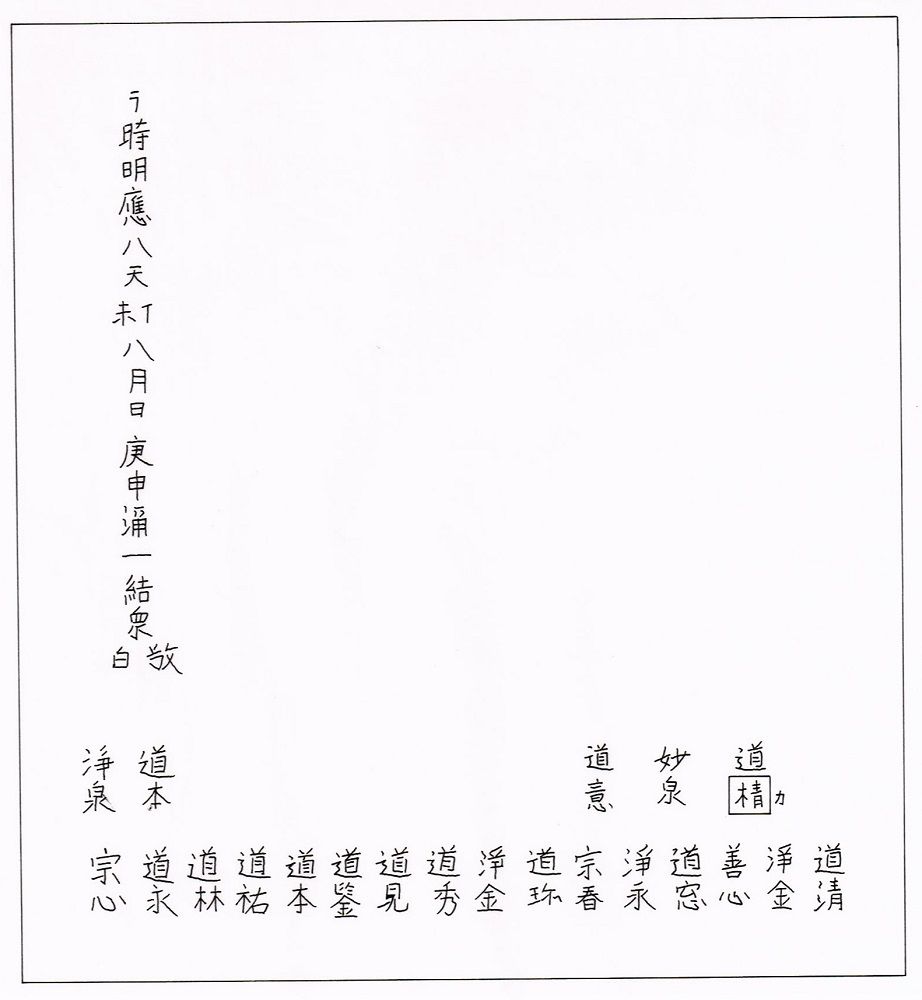 于時明應八天丁未八月日庚申涌一結衆敬白
道棈カ
妙泉
道意
道本
淨泉
道清
淨金
善心
道窓
淨永
宗春
道珎
淨金
道秀
道見
道鑒
道本
道祐
道林
道永
宗心